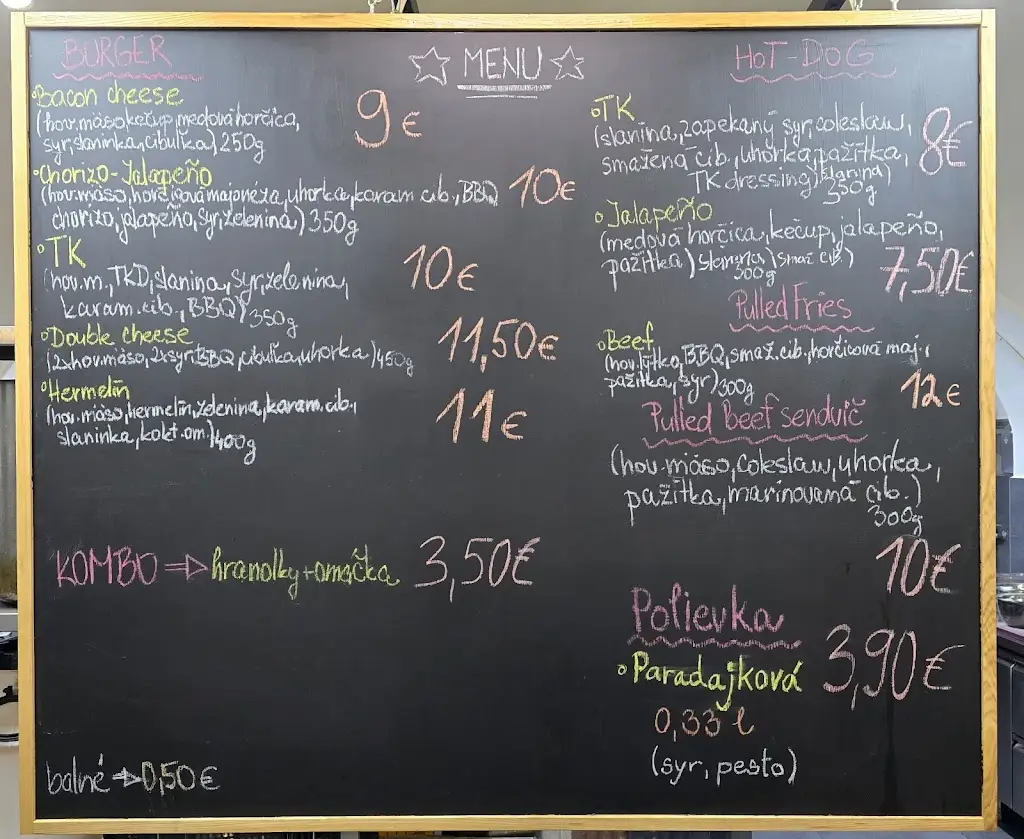 MENU
BURGER
Bacon cheese
(hov. mäso, kečup, medová horčica,
syr, slaninka, cibuľka) 250g
9€
Chorizo-Jalapeño
(hov. mäso, horčicová majonéza, uhorka, karam. cib., BBQ
chorizo, jalapeño, syr, zelenina) 350g
10€
TK
(hov. m., TKD, slanina, syr, zelenina,
karam. cib., BBQ) 350g
10€
Double cheese
(2x hov. mäso, 2x syr, BBQ, cibuľka, uhorka) 450g
11,50€
Hermelín
(hov. mäso, hermelín, zelenina, karam. cib.,
slaninka, kokt. om.) 400g
11€
KOMBO ⇒ hranolky + omáčka 3,50€
balné → 0,50€
HOT-DOG
TK
(slanina, zapekaný syr, coleslaw,
smažená cib., uhorka, pažítka,
TK dressing, slanina)
250g
8€
Jalapeño
(medová horčica, kečup, jalapeño,
pažítka) slanina, smaž. cib.)
300g
7,50€
Pulled Fries
Beef
(hov. lýtko, BBQ, smaž. cib., horčicová maj.,
pažítka, syr) 300g
12€
Pulled Beef sendvič
(hov. mäso, coleslaw, uhorka,
pažítka, marinovaná cib.)
300g
10€
Polievka
Paradajková 3,90€
0,33 l
(syr, pesto)